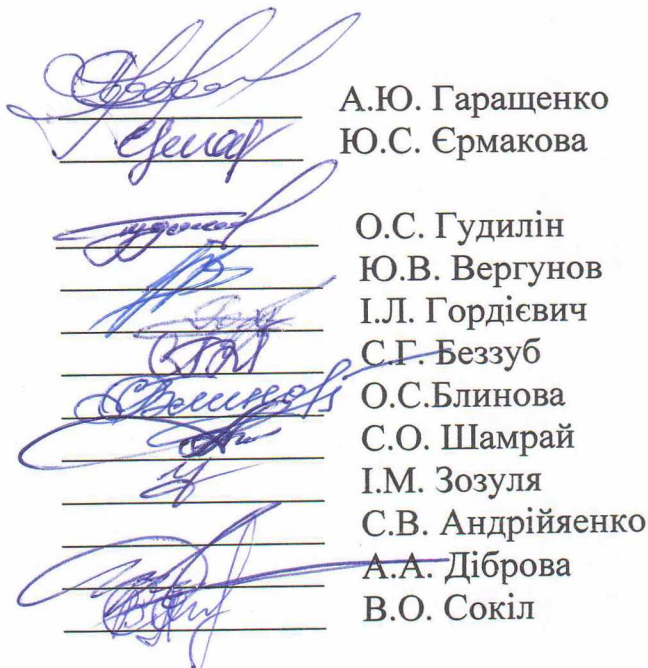 А.Ю. Гаращенко
Ю.С. Єрмакова
О.С. Гудилін
Ю.В. Вергунов
І.Л. Гордієвич
С.Г. Беззуб
О.С.Блинова
С.О. Шамрай
І.М. Зозуля
С.В. Андрійяенко
А.А. Діброва
В.О. Сокіл